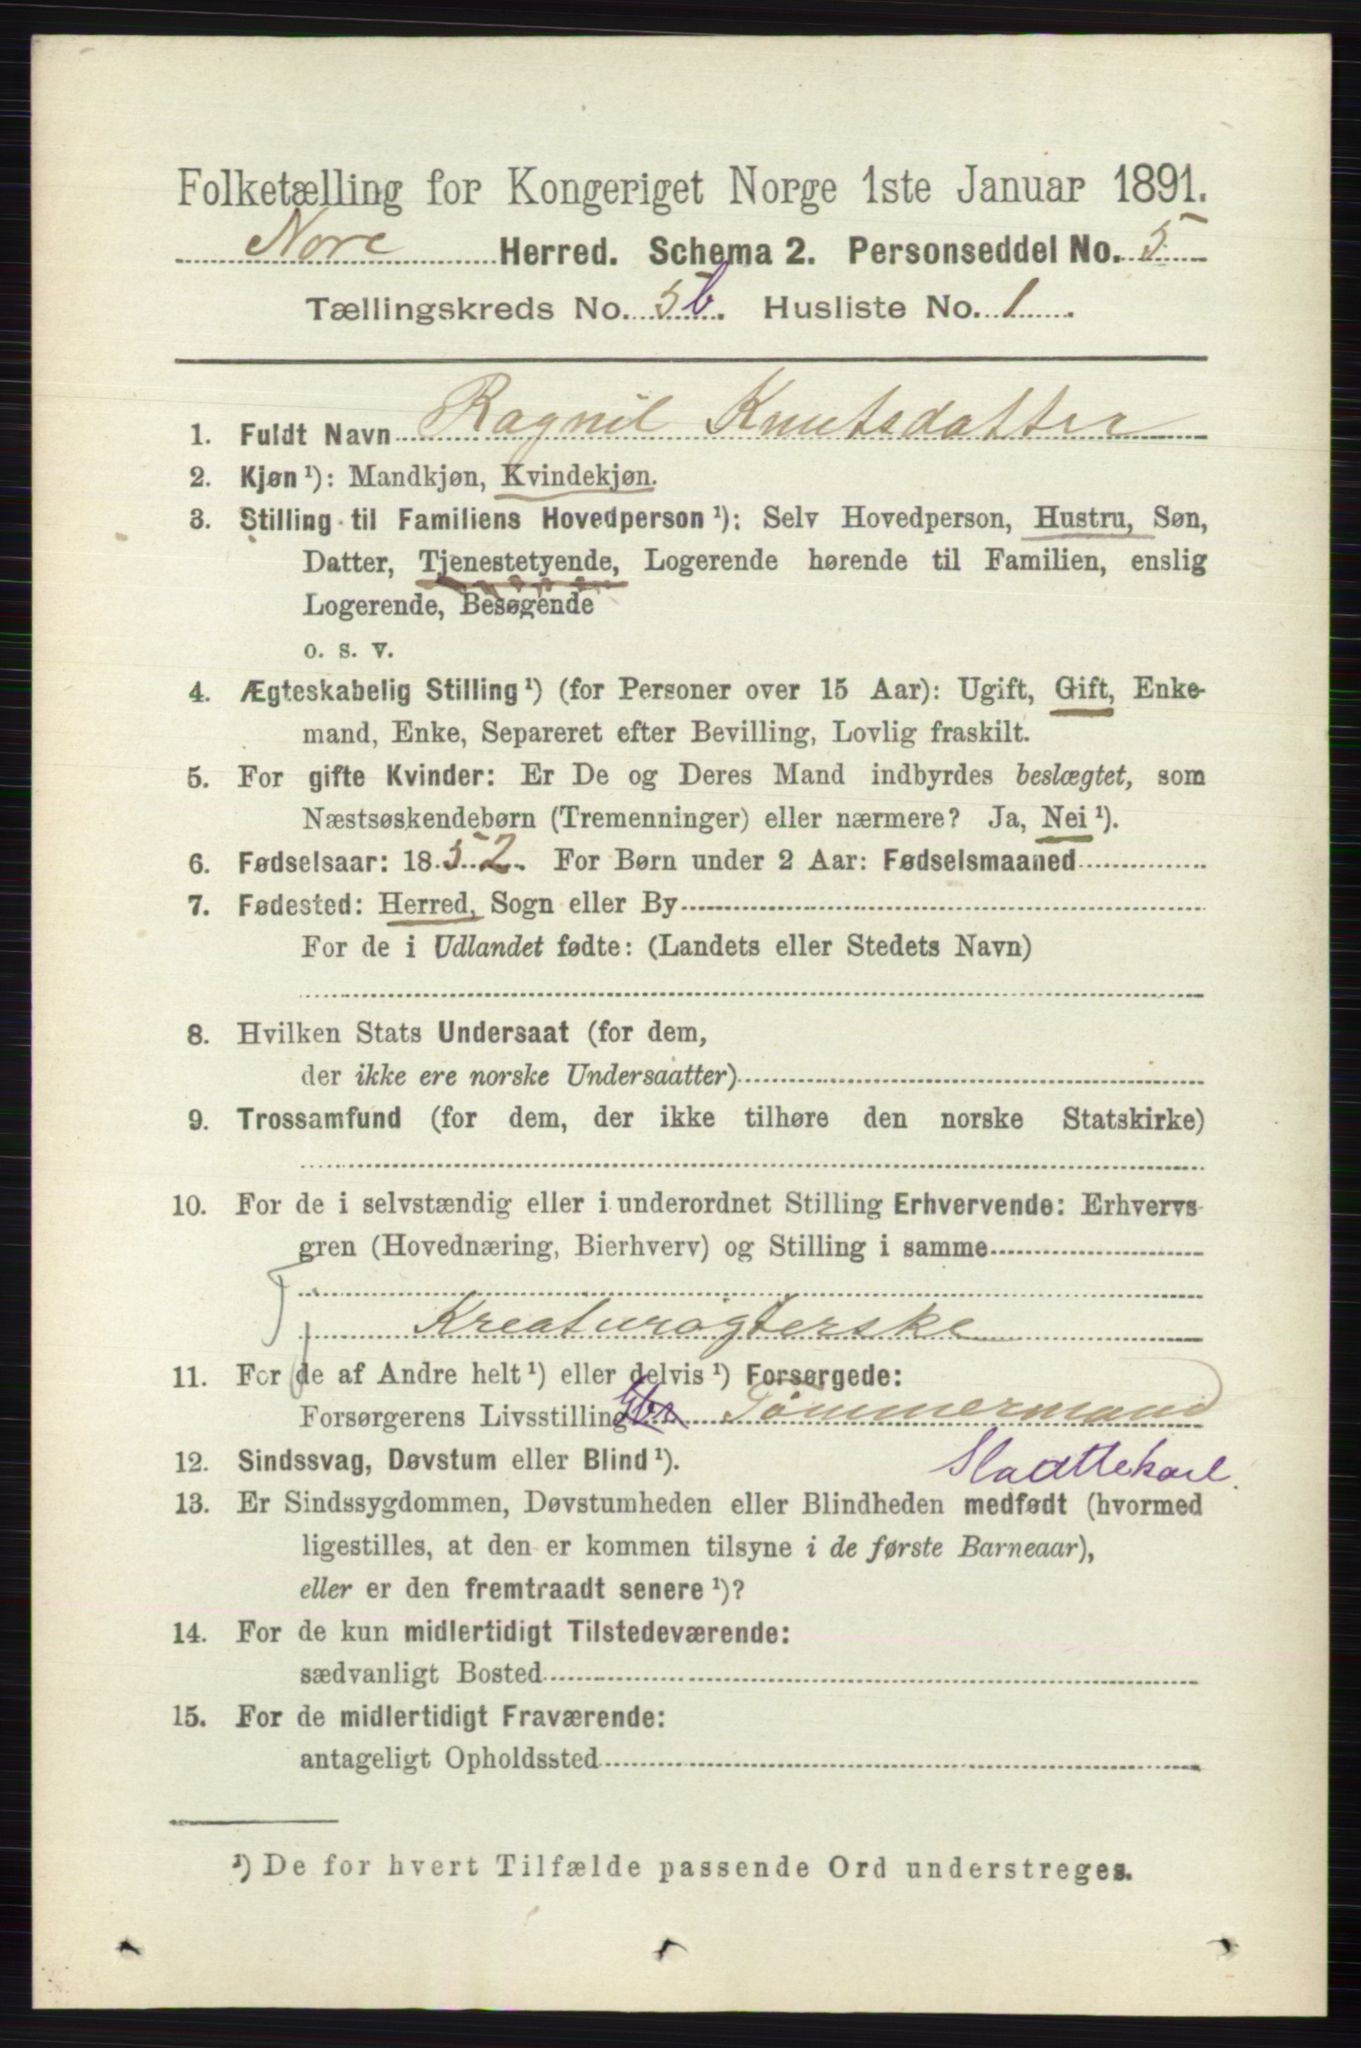 Folketælling for Kongeriget Norge 1ste Januar 1891.
Nore Herred. Schema 2. Personseddel No. 5
Tællingskreds No. 5b. Husliste No. 1.
1. Fuldt Navn Ragnil Knutsdatter
2. Kjøn ¹): Mandkjøn, Kvindekjøn.
3. Stilling til Familiens Hovedperson ¹): Selv Hovedperson, Hustru, Søn,
Datter, Tjenestetyende, Logerende hørende til Familien, enslig
Logerende, Besøgende
o. s. v.
4. Ægteskabelig Stilling ¹) (for Personer over 15 Aar): Ugift, Gift, Enke-
mand, Enke, Separeret efter Bevilling, Lovlig fraskilt.
5. For gifte Kvinder: Er De og Deres Mand indbyrdes beslægtet, som
Næstsøskendebørn (Tremenninger) eller nærmere? Ja, Nei ¹).
6. Fødselsaar: 1852. For Børn under 2 Aar: Fødselsmaaned
7. Fødested: Herred, Sogn eller By
For de i Udlandet fødte: (Landets eller Stedets Navn)
8. Hvilken Stats Undersaat (for dem,
der ikke ere norske Undersaatter)
9. Trossamfund (for dem, der ikke tilhøre den norske Statskirke)
10. For de i selvstændig eller i underordnet Stilling Erhvervende: Erhvervs-
gren (Hovednæring, Bierhverv) og Stilling i samme
Kreaturøgterske
11. For de af Andre helt ¹) eller delvis ¹) Forsørgede:
Forsørgerens Livsstilling Tømmermand
12. Sindssvag, Døvstum eller Blind ¹). Slaattekarl.
13. Er Sindssygdommen, Døvstumheden eller Blindheden medfødt (hvormed
ligestilles, at den er kommen tilsyne i de første Barneaar),
eller er den fremtraadt senere ¹)?
14. For de kun midlertidigt Tilstedeværende:
sædvanligt Bosted
15. For de midlertidigt Fraværende:
antageligt Opholdssted
¹) De for hvert Tilfælde passende Ord understreges.